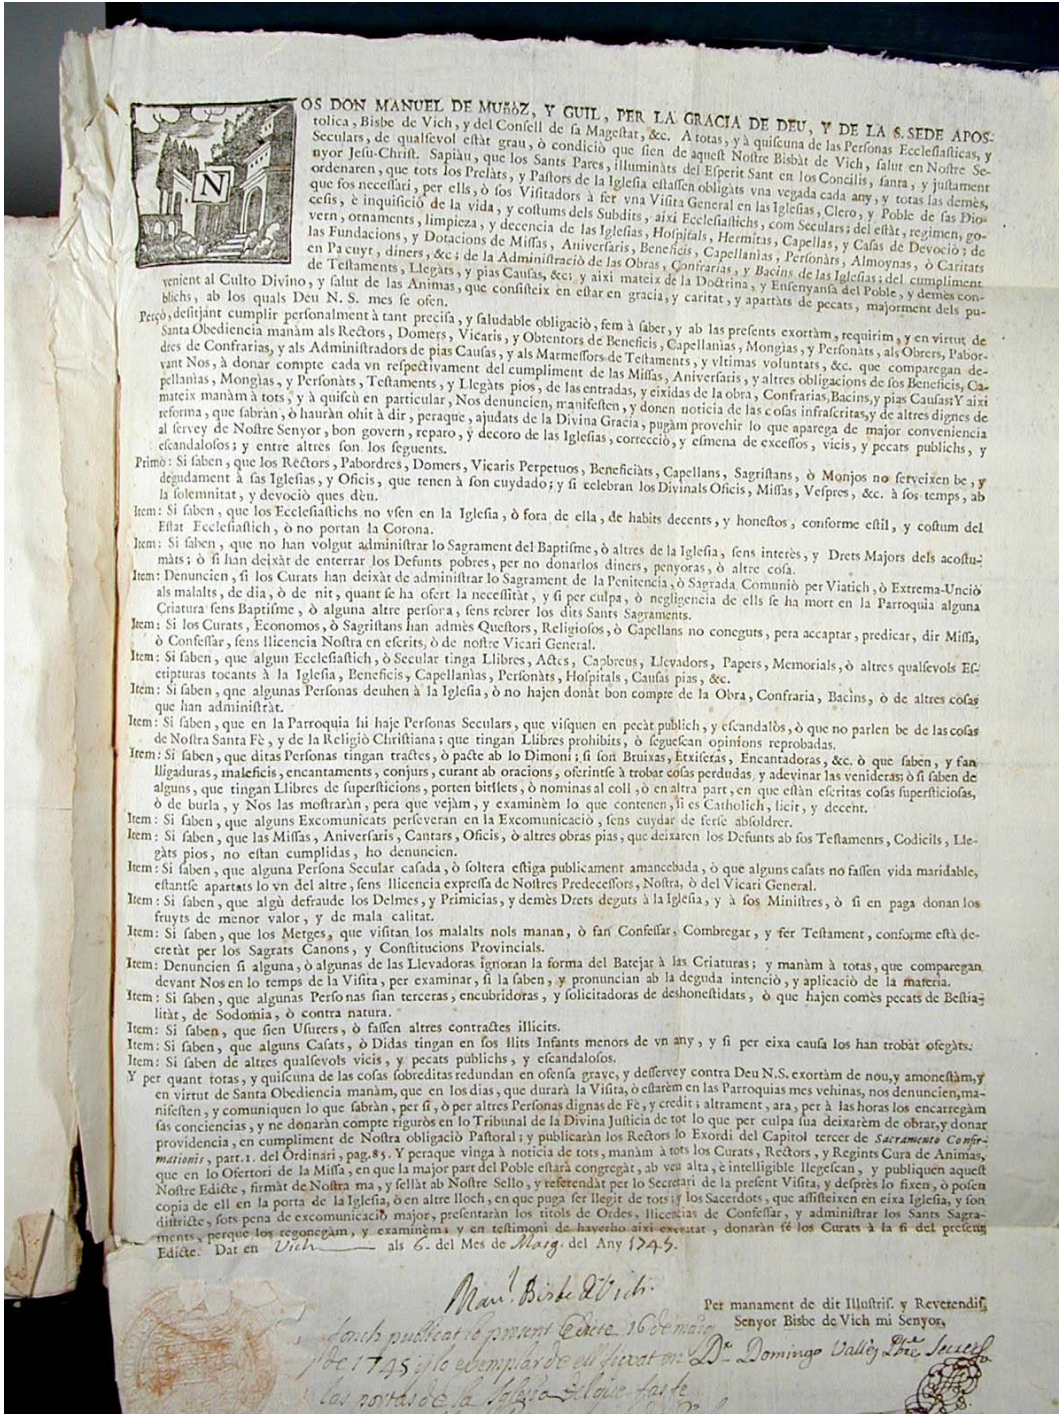 NOS DON MANUEL DE MUñòZ, Y GUIL, PER LA GRACIA DE DEU, Y DE LA S. SEDE APOS-
tolica, Bisbe de Vich, y del Consell de sa Magestat, &c. A totas, y à quiscuna de las Personas Ecclesiasticas, y
Seculars, de qualsevol estàt grau, ò condiciò que sien de aquest Nostre Bisbàt de Vich, salut en Nostre Se-
nyor Jesu-Christ. Sapiàu, que los Sants Pares, illuminàts del Esperit Sant en los Concilis, santa, y justament
ordenaren, que tots los Prelàts, y Pastors de la Iglesia estassen obligàts vna vegada cada any, y totas las demès,
que sos necessari, per ells, ò sos Visitadors à fer vna Visita General en las Iglesias, Clero, y Poble de sas Dio-
cesis, è inquisiciò de la vida, y costums dels Subdits, aixi Ecclesiastichs, com Seculars; del estàt, regimen, go-
vern, ornaments, limpieza, y decencia de las Iglesias, Hospitals, Hermitas, Capellas, y Casas de Devociò; de
las Fundacions, y Dotacions de Missas, Aniversaris, Beneficis, Capellanìas, Personàts, Almoynas, ò Caritats
en Pa cuyt, diners, &c; de la Administraciò de las Obras, Confrarias, y Bacins de las Iglesias; del cumpliment
de Testaments, Llegàts, y pias Causas, &c; y aixi mateix de la Doctrina, y Ensenyansa del Poble, y demès con-
venient al Culto Divino, y salut de las Animas, que consisteix en estar en gracia, y caritat, y apartàts de pecats, majorment dels pu-
blichs, ab los quals Deu N. S. mes se ofen.
Perçò, desitjànt cumplir personalment à tant precisa, y saludable obligaciò, fem à saber, y ab las presents exortàm, requirim, y en virtut de
Santa Obediencia manàm als Rectors, Domers, Vicaris, y Obtentors de Beneficis, Capellanìas, Mongìas, y Personàts, als Obrers, Pabor-
dres de Confrarias, y als Administradors de pias Causas, y als Marmessors de Testaments, y vltimas voluntats, &c. que comparegan de-
vant Nos, à donar compte cada vn respectivament del cumpliment de las Missas, Aniversaris, y altres obligacions de sos Beneficis, Ca-
pellanìas, Mongìas, y Personàts, Testaments, y Llegàts pios, de las entradas, y eixidas de la obra, Confrarias, Bacins, y pias Causas: Y aixi
mateix manàm à tots, y à quiscù en particular, Nos denuncien, manifesten, y donen noticia de las cosas infrascritas, y de altres dignes de
reforma, que sabràn, ò hauràn ohit à dir, peraque, ajudats de la Divina Gracia, pugàm provehir lo que aparega de major conveniencia
al servey de Nostre Senyor, bon govern, reparo, y decoro de las Iglesias, correcciò, y esmena de excessos, vicis, y pecats publichs, y
escandalosos; y entre altres son los seguents.
Primò: Si saben, que los Rectors, Pabordres, Domers, Vicaris Perpetuos, Beneficiàts, Capellans, Sagristans, ò Monjos no serveixen be, y
degudament à sas Iglesias, y Oficis, que tenen à son cuydado; y si celebran los Divinals Oficis, Missas, Vespres, &c. à sos temps, ab
la solemnitat, y devociò ques dèu.
Item: Si saben, que los Ecclesiastichs no vsen en la Iglesia, ò fora de ella, de habits decents, y honestos, conforme estil, y costum del
Estat Ecclesiastich, ò no portan la Corona.
Item: Si saben, que no han volgut administrar lo Sagrament del Baptisme, ò altres de la Iglesia, sens interès, y Drets Majors dels acostu-
màts; ò si han deixàt de enterrar los Defunts pobres, per no donarlos diners, penyoras, ò altre cosa.
Item: Denuncien, si los Curats han deixàt de administrar lo Sagrament de la Penitencia, ò Sagrada Comuniò per Viatich, ò Extrema-Unciò
als malalts, de dia, ò de nit, quant se ha ofert la necessitàt, y si per culpa, ò negligencia de ells se ha mort en la Parroquia alguna
Criatura sens Baptisme, ò alguna altre persora, sens rebrer los dits Sants Sagraments.
Item: Si los Curats, Economos, ò Sagristans han admès Questors, Religiosos, ò Capellans no coneguts, pera acceptar, predicar, dir Missa,
ò Confessar, sens llicencia Nostra en escrits, ò de nostre Vicari General.
Item: Si saben, que algun Ecclesiastich, ò Secular tinga Llibres, Actes, Capbreus, Llevadors, Papers, Memorials, ò altres qualsevols Es-
cripturas tocants à la Iglesia, Beneficis, Capellanìas, Personàts, Hospitals, Causas pias, &c.
Item: Si saben, qne algunas Personas deuhen à la Iglesia, ò no hajen donàt bon compte de la Obra, Confraria, Bacins, ò de altres cosas
que han administràt.
Item: Si saben, que en la Parroquia hi haje Personas Seculars, que visquen en pecàt publich, y escandalòs, ò que no parlen be de las cosas
de Nostra Santa Fè, y de la Religiò Christiana; que tingan Llibres prohibits, ò seguescan opinions reprobadas.
Item: Si saben, que ditas Personas tingan tractes, ò pacte ab lo Dimoni; si son Bruixas, Etxiseras, Encantadoras, &c. ò que saben, y fan
lligaduras, maleficis, encantaments, conjurs, curant ab oracions, oferintse à trobar cosas perdudas, y adevinar las venideras; ò si saben de
alguns, que tingan Llibres de supersticions, porten bitllets, ò nominas al coll, ò en altra part, en que estàn escritas cosas supersticiosas,
ò de burla, y Nos las mostraràn, pera que vejàm, y examinèm lo que contenen, si es Catholich, licit, y decent.
Item: Si saben, que alguns Excomunicats perseveran en la Excomunicaciò, sens cuydar de ferse absoldrer.
Item: Si saben, que las Missas, Aniversaris, Cantars, Oficis, ò altres obras pias, que deixaren los Defunts ab sos Testaments, Codicils, Lle-
gàts pios, no estan cumplidas, ho denuncien.
Item: Si saben, que alguna Persona Secular casada, ò soltera estiga publicament amancebada, ò que alguns casats no fassen vida maridable,
estantse apartats lo vn del altre, sens llicencia expressa de Nostres Predecessors, Nostra, ò del Vicari General.
Item: Si saben, que algù defraude los Delmes, y Primicias, y demès Drets deguts à la Iglesia, y à sos Ministres, ò si en paga donan los
fruyts de menor valor, y de mala calitat.
Item: Si saben, que los Metges, que visitan los malalts nols manan, ò fan Confessar, Combregar, y fer Testament, conforme està de-
cretàt per los Sagrats Canons, y Constitucions Provincials.
Item: Denuncien si alguna, ò algunas de las Llevadoras ignoran la forma del Batejar à las Criaturas; y manàm à totas, que comparegan
devant Nos en lo temps de la Visita, per examinar, si la saben, y pronuncian ab la deguda intenciò, y aplicaciò de la materia.
Item: Si saben, que algunas Personas sian terceras, encubridoras, y solicitadoras de deshonestidats, ò que hajen comès pecats de Bestia-
litàt, de Sodomia, ò contra natura.
Item: Si saben, que sien Usurers, ò fassen altres contractes illicits.
Item: Si saben, que alguns Casats, ò Didas tingan en sos llits Infants menors de vn any, y si per eixa causa los han trobàt ofegàts.
Item: Si saben de altres qualsevols vicis, y pecats publichs, y escandalosos.
Y per quant totas, y quiscuna de las cosas sobreditas redundan en ofensa grave, y desservey contra Deu N.S. exortàm de nou, y amonestàm, y
en virtut de Santa Obediencia manàm, que en los dias, que durarà la Visita, ò estarèm en las Parroquias mes vehinas, nos denuncien, ma-
nifesten, y comuniquen lo que sabràn, per si, ò per altres Personas dignas de Fè, y credit; altrament, ara, per à las horas los encarregàm
sas conciencias, y ne donaràn compte riguròs en lo Tribunal de la Divina Justicia de tot lo que per culpa sua deixarèm de obrar, y donar
providencia, en cumpliment de Nostra obligaciò Pastoral; y publicaràn los Rectors lo Exordi del Capitol tercer de Sacramento Confir-
mationis, part. 1. del Ordinari, pag. 85. Y peraque vinga à noticia de tots, manàm à tots los Curats, Rectors, y Regints Cura de Animas,
que en lo Ofertori de la Missa, en que la major part del Poble estarà congregàt, ab veu alta, è intelligible llegescan, y publiquen aquest
Nostre Edicte, firmàt de Nostra ma, y sellàt ab Nostre Sello, y referendàt per lo Secretari de la present Visita, y desprès lo fixen, ò posen
copia de ell en la porta de la Iglesia, ò en altre lloch, en que puga ser llegit de tots; y los Sacerdots, que assisteixen en eixa Iglesia, y son
districte, sots pena de excomunicaciò major, presentaràn los titols de Ordes, llicencias de Confessar, y administrar los Sants Sagra-
ments, perque los regonegàm, y examinèm; y en testimoni de haverho aixi executat, donaràn fè los Curats à la fi del present
Edicte. Dat en Vich als 6. del Mes de Maig. del Any 1745.
Man.l Bisbe de Vich.
Per manament de dit Illustris. y Reverendis.
Senyor Bisbe de Vich mi Senyor.
fonch publicat lo present Edicte 16 de maig
de 1745 y lo exemplar de ell fixat en
Dr. Domingo Vallès Pbre Secret.
las portas de la Iglesia